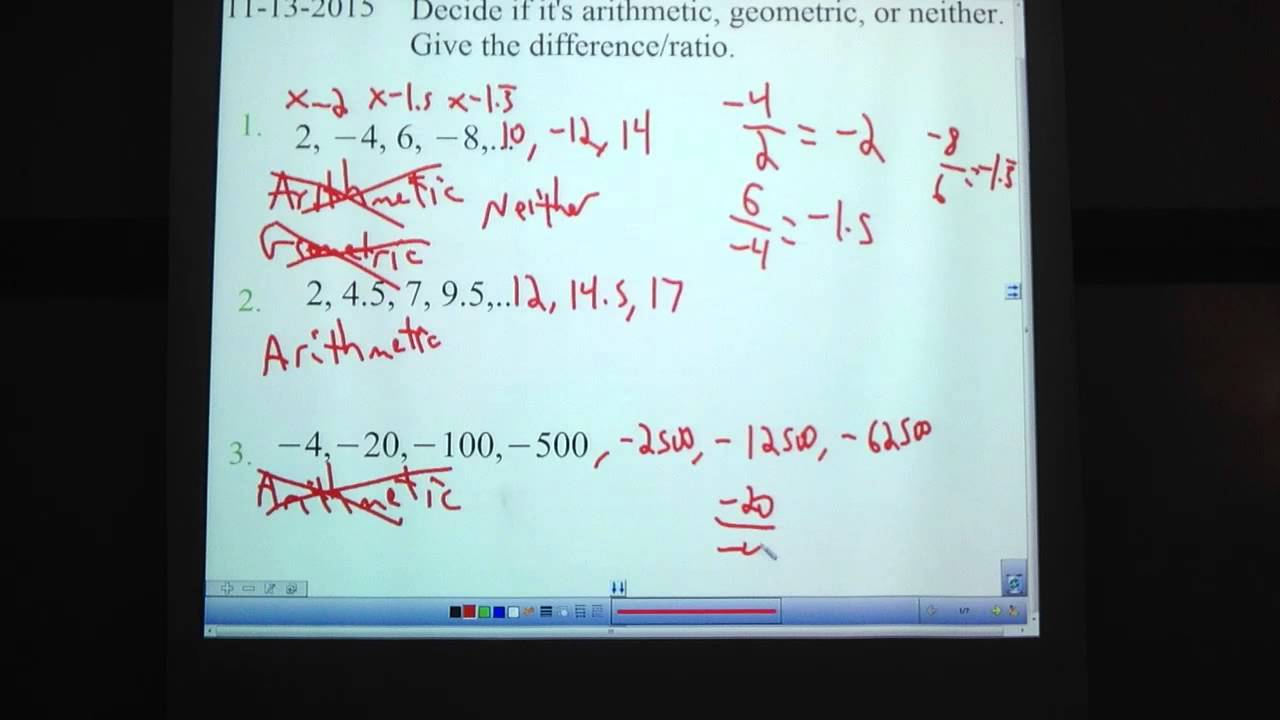 11-13-2015 Decide if it's arithmetic, geometric, or neither.
Give the difference/ratio.
x-2 x-1.5 x-1.3̅
1. 2, −4, 6, −8,... 10, -12, 14
Arithmetic
Neither
Geometric
-4/2 = -2
-8/6 = -1.3̅
6/-4 = -1.5
2. 2, 4.5, 7, 9.5,... 12, 14.5, 17
Arithmetic
3. −4, −20, −100, −500, -2500, -12500, -62500
Arithmetic
-20
1/7